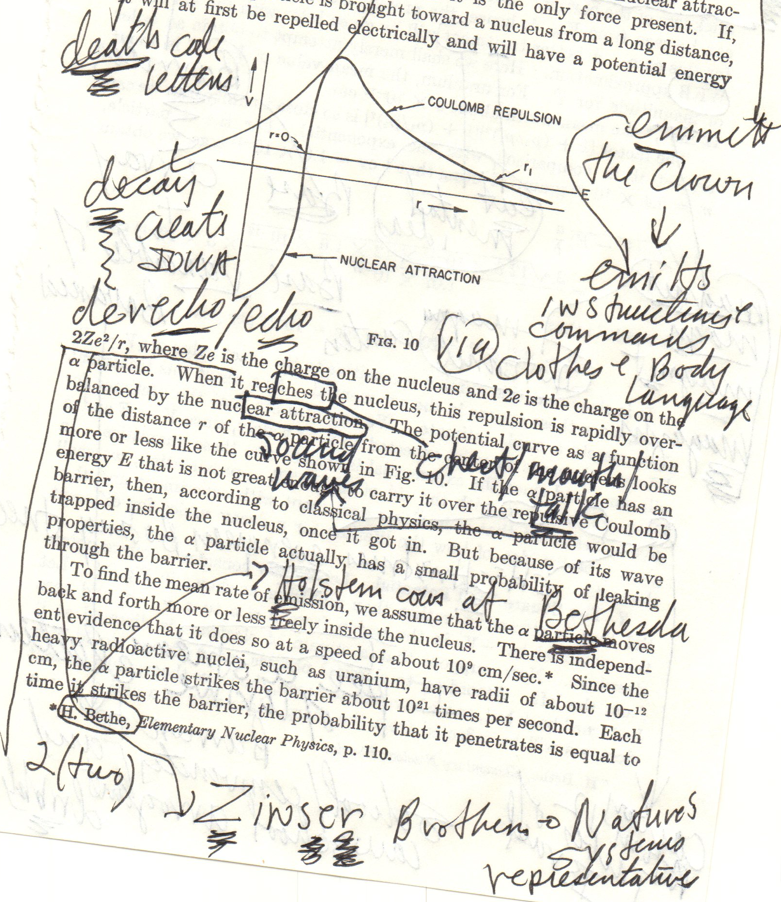 is the only force present. If,
is brought toward a nucleus from a long distance,
will at first be repelled electrically and will have a potential energy
death code
letters
V
COULOMB REPULSION
r=0
r₁
E
r
NUCLEAR ATTRACTION
emmett
the Clown
decay
Creats
IOWA
emitts
instructions &
commands
derecho/echo
FIG. 10
via
Clothes & Body
Language
2Ze²/r, where Ze is the charge on the nucleus and 2e is the charge on the
α particle. When it reaches the nucleus, this repulsion is rapidly over-
balanced by the nuclear attraction. The potential curve as a function
of the distance r of the α particle from the center of looks
more or less like the curve shown in Fig. 10. If the α particle has an
energy E that is not great to carry it over the repulsive Coulomb
barrier, then, according to classical physics, the α particle would be
trapped inside the nucleus, once it got in. But because of its wave
properties, the α particle actually has a small probability of leaking
through the barrier.
sound
waves
mouth/
talk
Holstein cows at Bethesda
To find the mean rate of emission, we assume that the α particle moves
back and forth more or less freely inside the nucleus. There is independ-
ent evidence that it does so at a speed of about 10⁹ cm/sec.* Since the
heavy radioactive nuclei, such as uranium, have radii of about 10⁻¹²
cm, the α particle strikes the barrier about 10²¹ times per second. Each
time it strikes the barrier, the probability that it penetrates is equal to
*H. Bethe, Elementary Nuclear Physics, p. 110.
2 (two)
Zinser Brothers → Natures
Systems
representatives